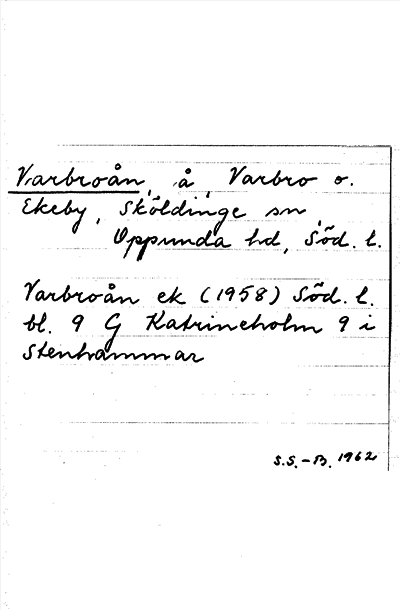 Varbroån, å, Varbro o.
Ekeby, Sköldinge sn,
Oppunda hd, Söd. l.
Varbroån ek (1958) Söd. l.
bl. 9 G Katrineholm 9 i
Stenhammar
S.S.-B. 1962